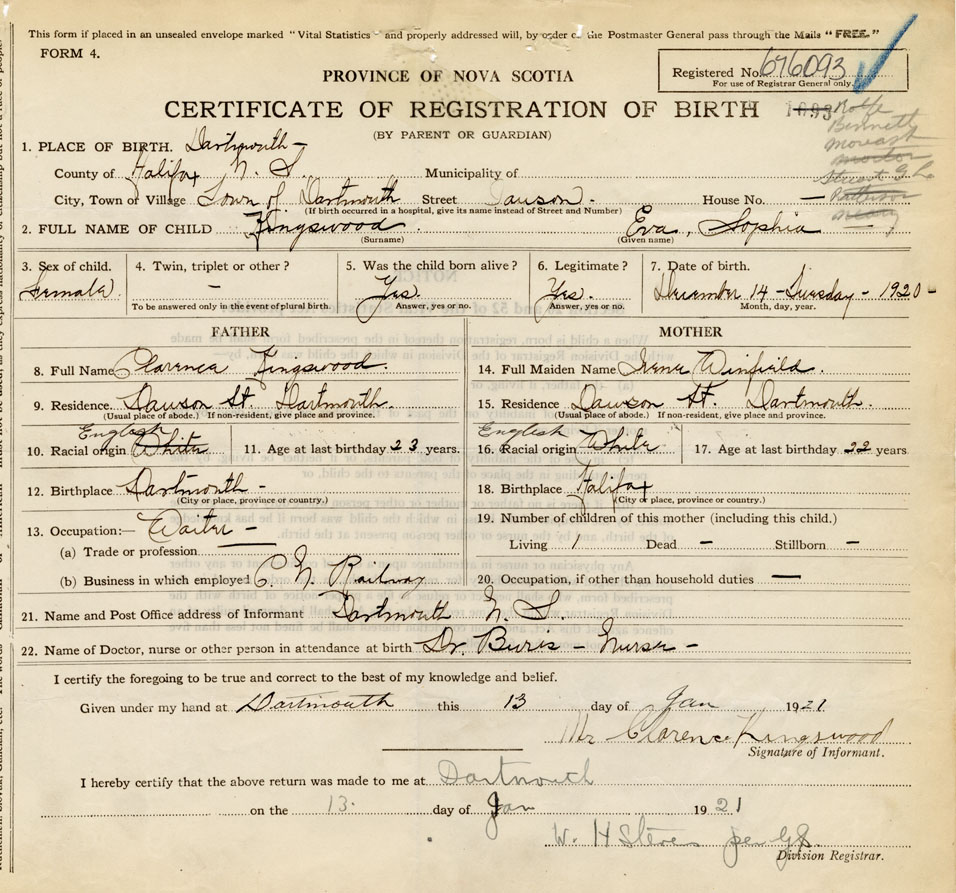 This form if placed in an unsealed envelope marked "Vital Statistics" and properly addressed will, by order of the Postmaster General pass through the Mails "FREE."
FORM 4.
Registered No. 676093
For use of Registrar General only.
PROVINCE OF NOVA SCOTIA
CERTIFICATE OF REGISTRATION OF BIRTH
(BY PARENT OR GUARDIAN)
Rolfe
Bennett
1. PLACE OF BIRTH. Dartmouth -
County of Halifax N. S. Municipality of
City, Town or Village Town of Dartmouth Street Dawson. House No. —
(If birth occurred in a hospital, give its name instead of Street and Number)
2. FULL NAME OF CHILD Kingswood. Eva, Sophia
(Surname) (Given name)
3. Sex of child. 4. Twin, triplet or other? 5. Was the child born alive? 6. Legitimate? 7. Date of birth.
Female. - Yes. Yes. December 14 - Tuesday - 1920 -
To be answered only in the event of plural birth. Answer, yes or no. Answer, yes or no. Month, day, year.
FATHER
8. Full Name Clarence Kingswood.
9. Residence. Dawson St. Dartmouth.
(Usual place of abode.) If non-resident, give place and province.
English
10. Racial origin White 11. Age at last birthday 23 years.
12. Birthplace Dartmouth -
(City or place, province or country.)
13. Occupation:— Waiter -
(a) Trade or profession
(b) Business in which employed C. N. Railway
MOTHER
14. Full Maiden Name Irene Winfield.
15. Residence. Dawson St. Dartmouth.
(Usual place of abode.) If non-resident, give place and province.
English
16. Racial origin White 17. Age at last birthday 22 years
18. Birthplace Halifax
(City or place, province or country.)
19. Number of children of this mother (including this child.)
Living 1 Dead — Stillborn —
20. Occupation, if other than household duties —
21. Name and Post Office address of Informant Dartmouth N. S.
22. Name of Doctor, nurse or other person in attendance at birth Dr. Burris - Nurse -
I certify the foregoing to be true and correct to the best of my knowledge and belief.
Given under my hand at Dartmouth this 13 day of Jan 1921
Mr Clarence Kingswood
Signature of Informant.
I hereby certify that the above return was made to me at Dartmouth
on the 13. day of Jan 1921
W. H Stevens per
Division Registrar.